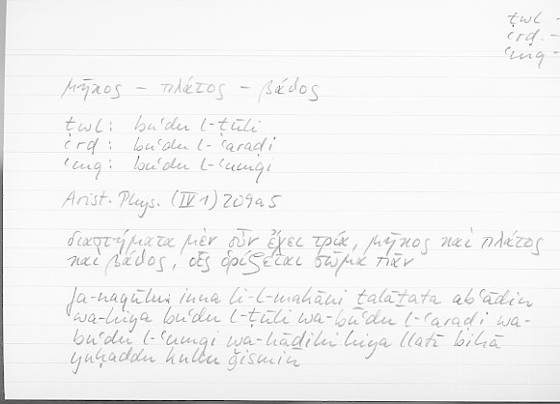 ṭwl -
ʿrḍ -
ʿmq -
μῆκος – πλάτος – βάθος
ṭwl: buʿdu l-ṭūli
ʿrḍ: buʿdu l-ʿaraḍi
ʿmq: buʿdu l-ʿumqi
Arist. Phys. (IV 1) 209a5
διαστήματα μὲν οὖν ἔχει τρία, μῆκος καὶ πλάτος
καὶ βάθος, οἷς ὁρίζεται σῶμα πᾶν
fa-naqūlu: inna li-l-makāni ṯalāṯata abʿādin
wa-hiya buʿdu l-ṭūli wa-buʿdu l-ʿaraḍi wa-
buʿdu l-ʿumqi wa-hāḏihi hiya llatī bihā
yuḥaddu kullu ǧismin